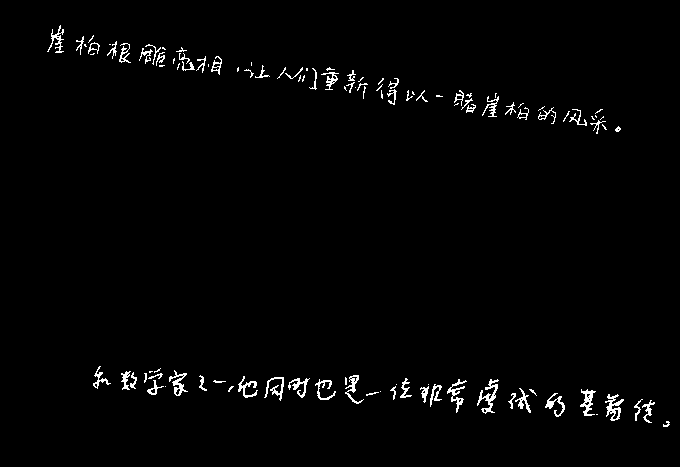 崖柏根雕亮相,让人们重新得以一睹崖柏的风采。
和数学家之一,他同时也是一位非常虔诚的基督徒。